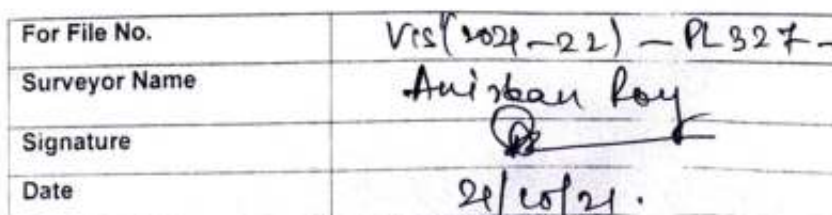 For File No. VIS(2021-22) - PL327-
Surveyor Name Anirban Roy
Signature
Date 21/10/21.